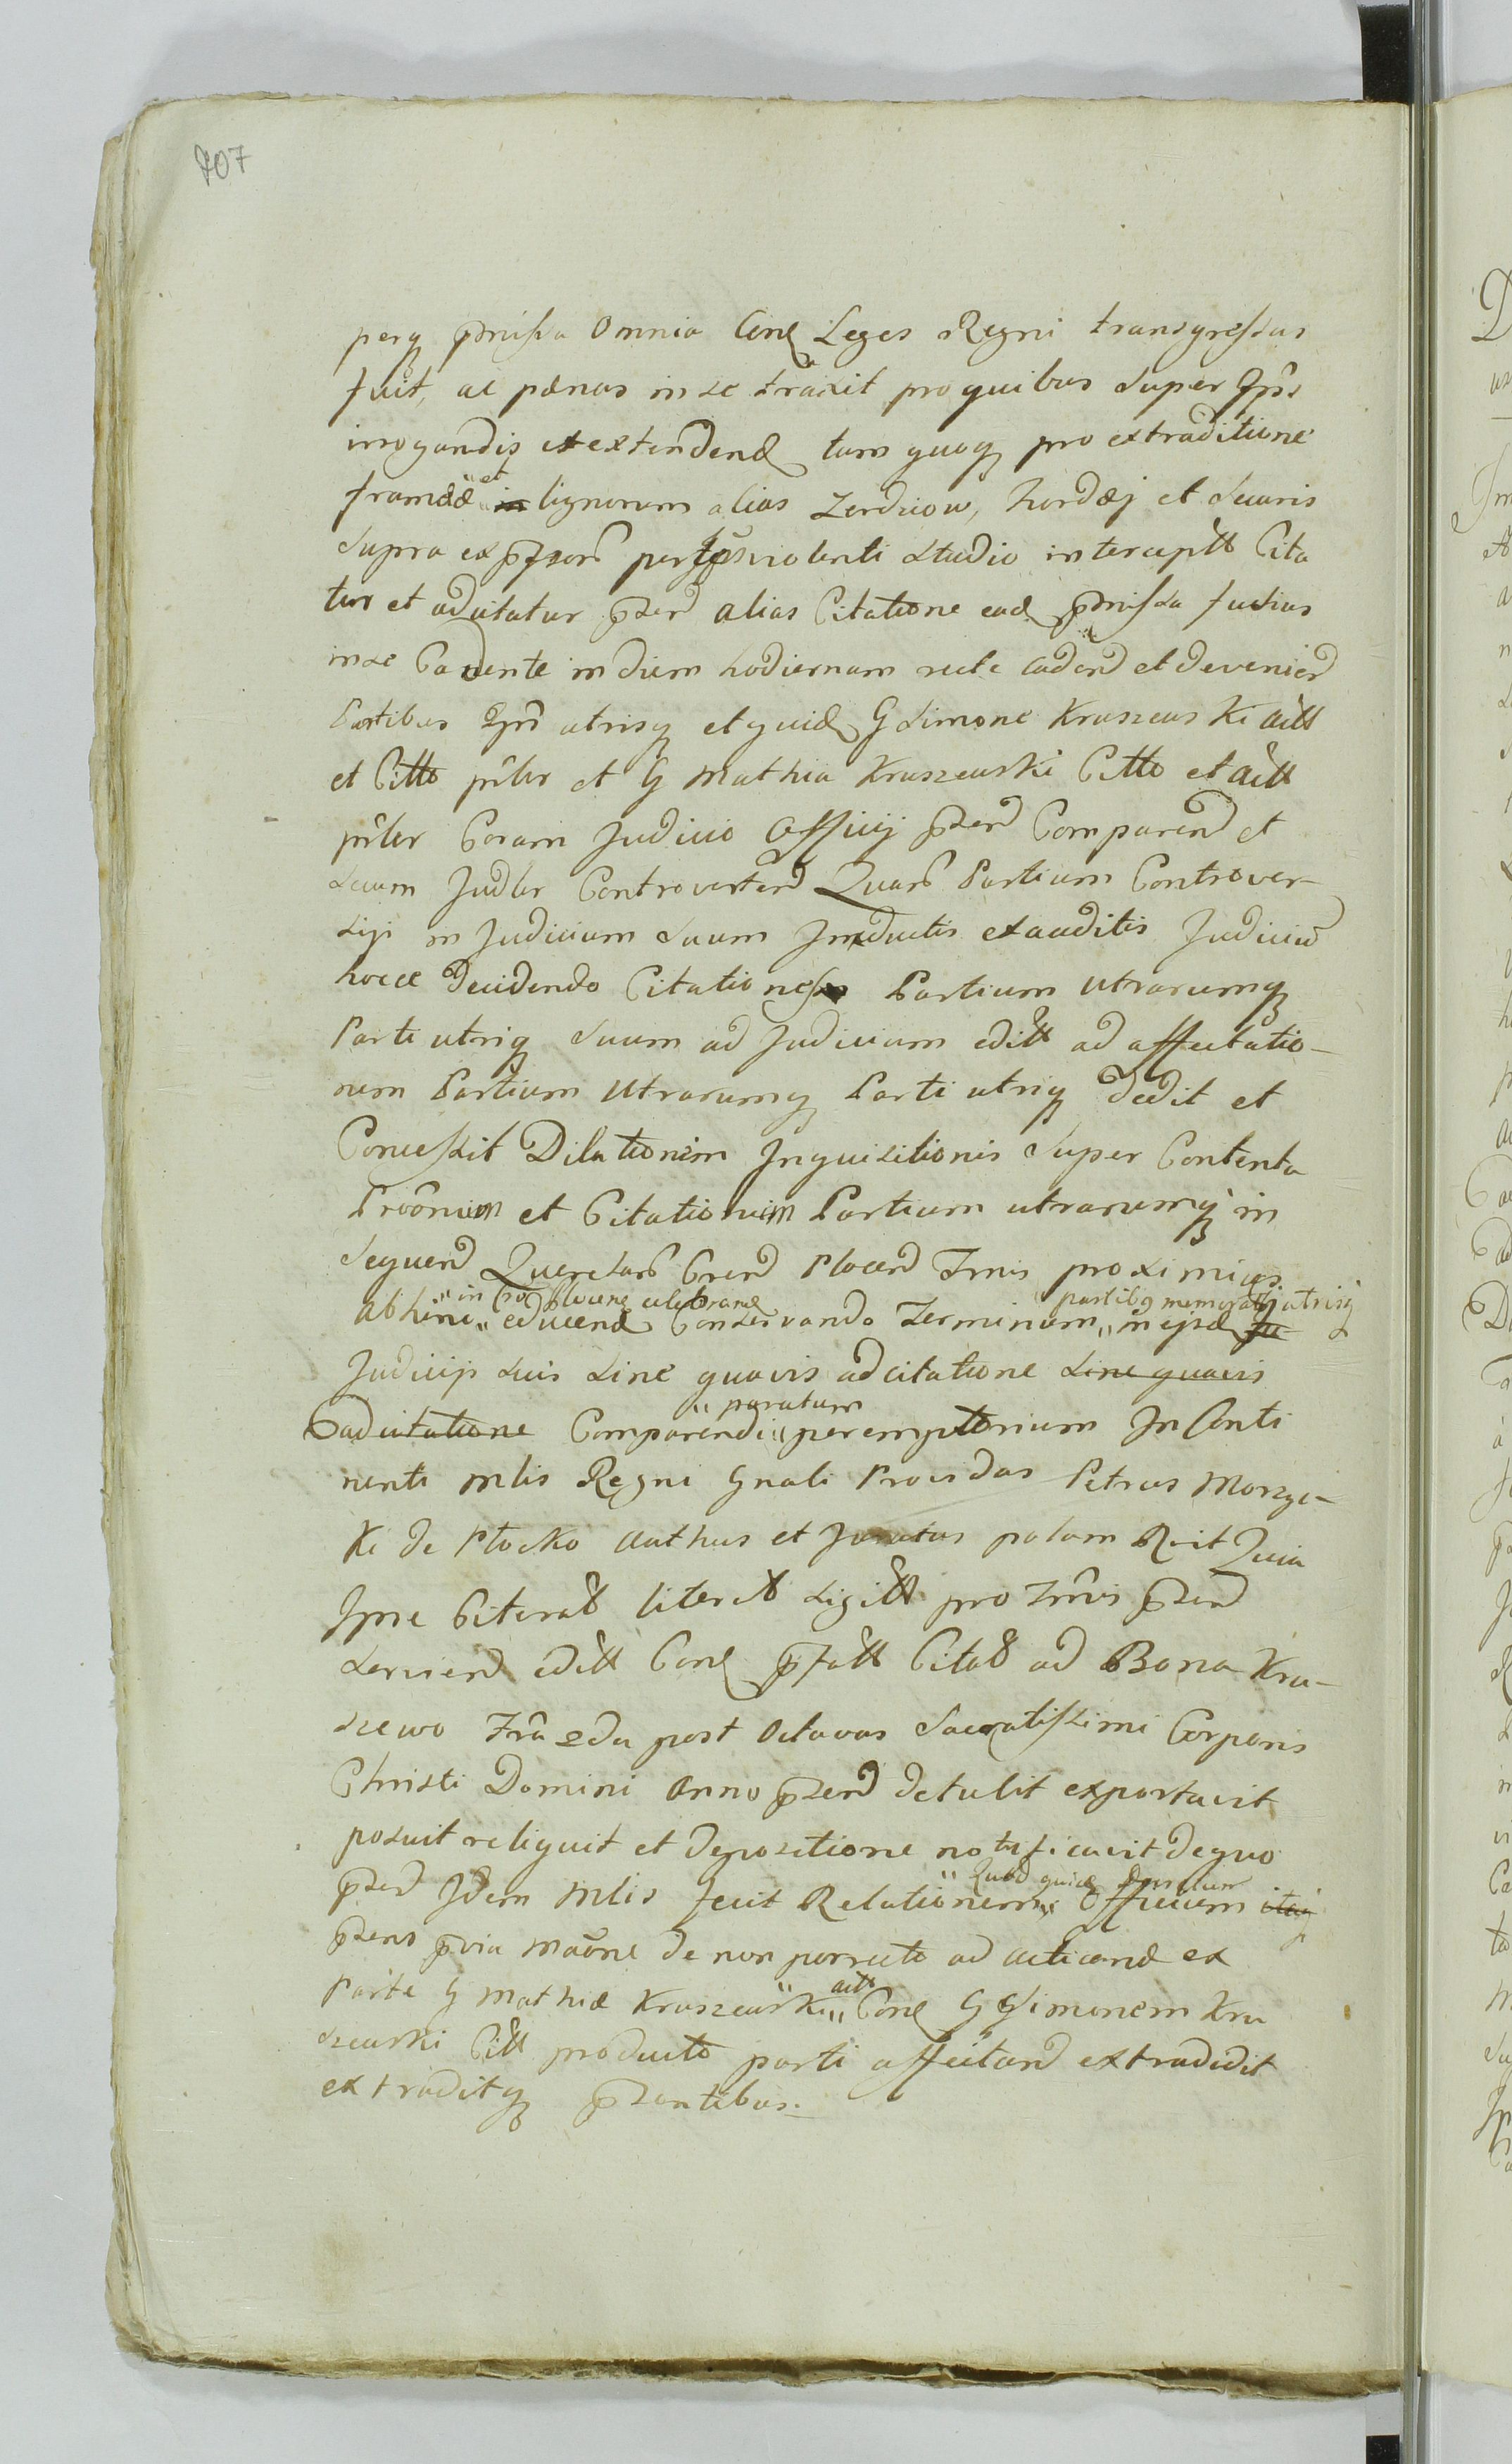 707
perq pmissa Omnia Cone Leges Regni transgressus
fuit, ac pænas in se traxit pro quibus super Ipso
irrogandis et extendend tum quoq pro extraditione
frameæ et lignorum alias Zerdziow, hordej et securis
supra expssor per violenti studio intercepta Cita
tur et adcitatur pzen alias Citatione ead pmissa fusius
in se Cadente in diem hodiernam recte caden et devenien
Partibus Ipis utrisq et quid G Simone Kruszewski actt
et Citto pnler et G Mathia Kruszewski Citto et actt
pnler Coram Judicio Officij pzen Comparen et
secum Judler Controverten Quar Partium Controver-
sijs in Judicium suum Inductis exauditis Judiciu
hocce Decidendo Citationes Partium Utrarumq
Parti utriq suum ad Judicium editt ad affectatio-
nem Partium Utrarumq Parti utriq Dedit et
Concessit Dilationem Inquisitionis super Contenta
Prôônum et Citationum Partium utrarumq in
sequen Querelar Gren Plocen Trnis proximius
in Cro Plocene celebrane partibq memoratq utrisq
abhinc educend Conservando Terminum in ejsd
Judicijs suis sine quavis adcitatione sine quavis
paratum
adcitatione Comparendi peremptorium In Conti
nenti Mlis Regni Gnali Providus Petrus Morzyc-
ki de Plocko Authus et Juratus palam R-it Quia
Ipse Citerat literat sigitt pro Trnis pzen
servien editt Cone pfatt Citat ad Bona Kru-
szewo Fra 2da post Octavas Sacratissimi Corporis
Christi Domini Anno pzen detulit exportavit
posuit reliquit et depositione notificavit de quo
Quod quid
pzen Idem Mlis fecit Relationem Officium itaq
pzens pvia Maône de non porrecto ad acticand ex
actt
Parte G Mathiæ Kruszewski Cone G Simonem Kru
szewski Citt producto parti affectan extradidit
extraditq pzentibus.